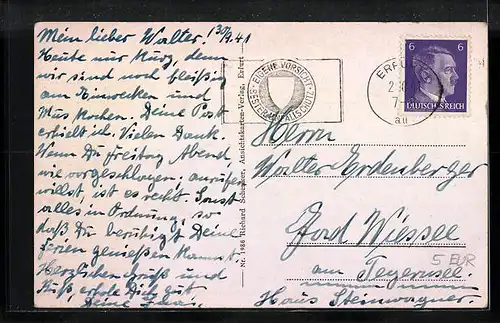 Mein lieber Walter! 30/9.41
Heute nur kurz, denn
wir sind noch fleißig
am Einwecken und
Mus kochen. Deine Post
erhielt ich. Vielen Dank.
Wenn Du Freitag Abend,
wie vorgeschlagen, anrufen
willst, ist es recht. Sonst
alles in Ordnung, so
daß Du beruhigt Deine
Ferien genießen kannst.
Herzlichen Gruß und
Kuß erhole Dich gut
Deine
Nr. 1986 Richard Ansichtskarten-Verlag, Erfurt
EIGENE VORSICHT
BESTER UNFALLSCHUTZ
ERFU
2.10
7-
au
6 6
DEUTSCHES REICH
Herrn
Walter Erdenberger
Bad Wiessee
am Tegernsee.
Haus Steinwagner.
5 EUR